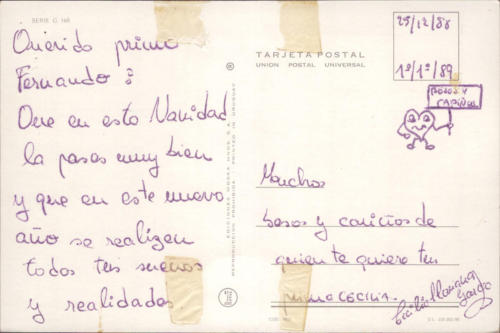 SERIE C 148
Querido primo
Fernando:
Que en esta Navidad
la pases muy bien
y que en este nuevo
año se realizen
todos tus sueños
y realidades
TARJETA POSTAL
UNION POSTAL UNIVERSAL
25/12/88
1º/1º/89
BESOS Y
CARIÑOS
Muchos
besos y cariños de
quien te quiere tu
prima CECILIA.
Cecilia